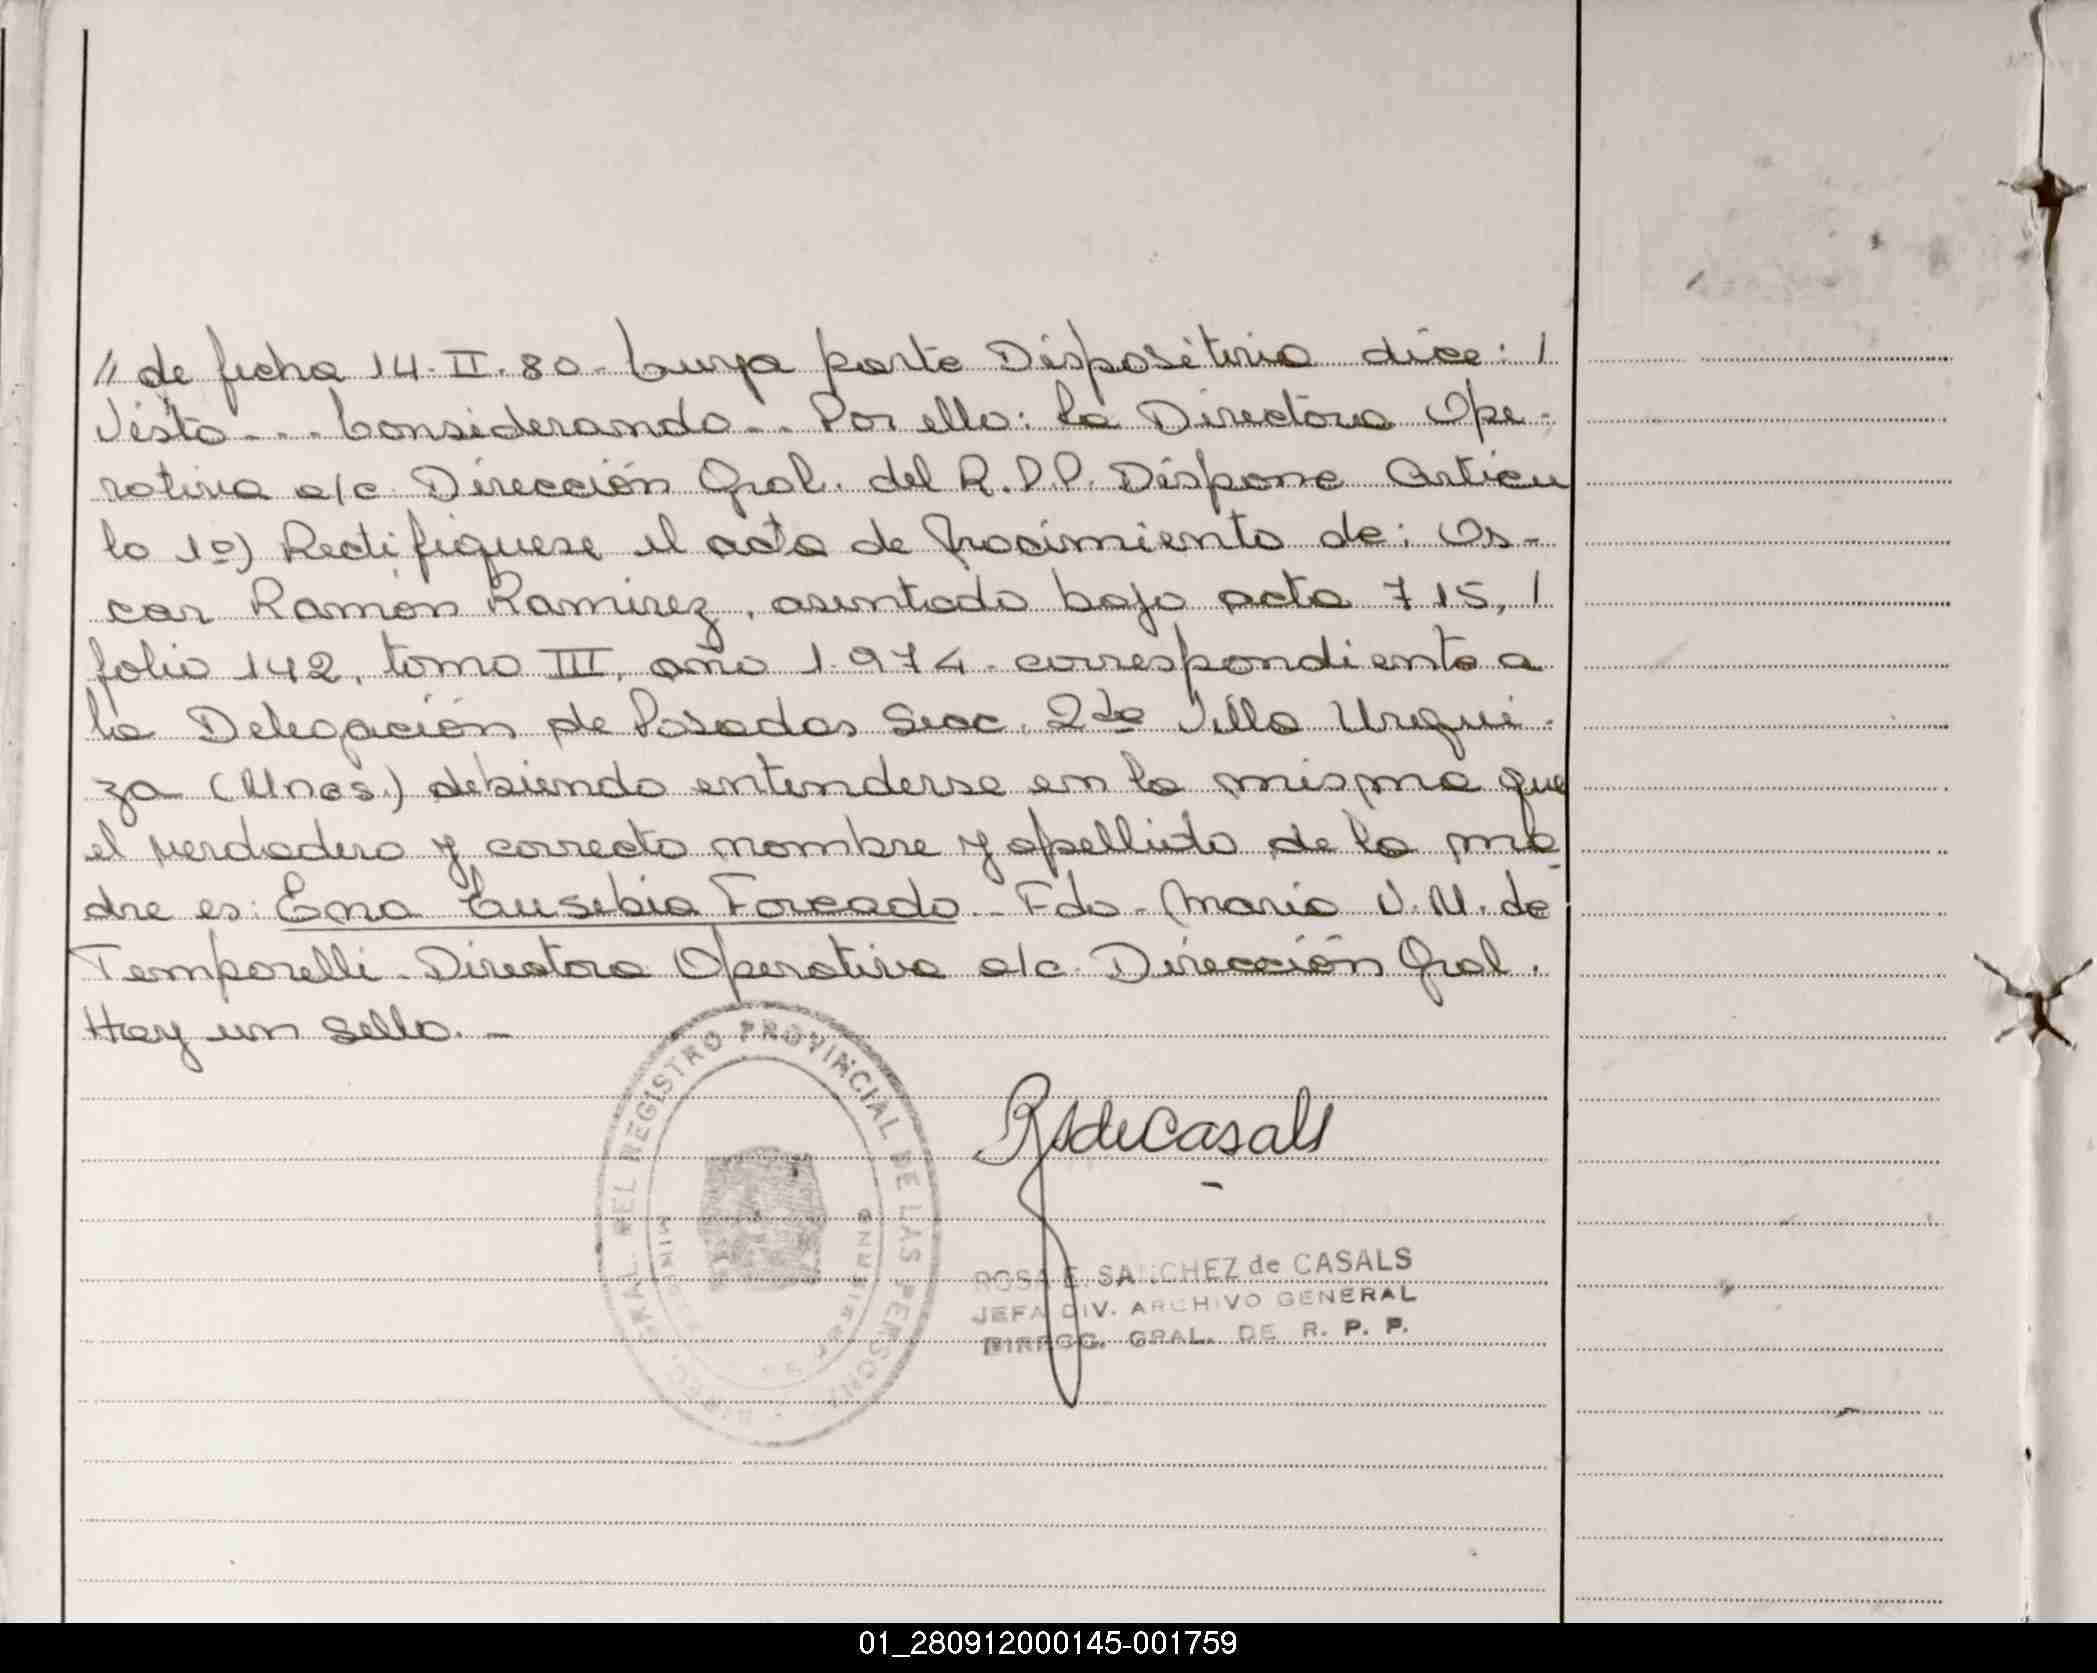 // de fecha 14.II.80. Cuya parte Dispositiva dice: /
Visto... Considerando... Por ello: La Directora Ope-
rativa a/c. Dirección Gral. del R.P.P. Dispone Artícu
lo 1º) Rectifiquese el acta de Nacimiento de: Os-
car Ramón Ramirez, asentado bajo acta 715, /
folio 142, tomo III, año 1.974. correspondiente a
la Delegación de Posadas Secc. 2da Villa Urqui-
za (Mnes.) debiendo entenderse en la misma que
el verdadero y correcto nombre y apellido de la ma
dre es: Ema Eusebia Forcado.. Fdo. Maria V.M. de
Temporelli. Directora Operativa a/c. Dirección Gral.
Hay un sello. -
DIREC. GRAL. DEL REGISTRO PROVINCIAL DE LAS PERSONAS
RSdeCasals
ROSA E. SANCHEZ de CASALS
JEFA DIV. ARCHIVO GENERAL
DIRECC. GRAL. DE R. P. P.
01_280912000145-001759